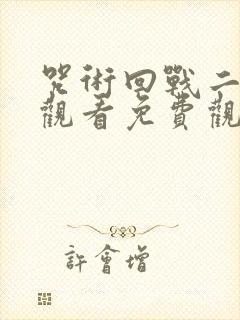 咒術回戰二
觀看免費觀
許會增